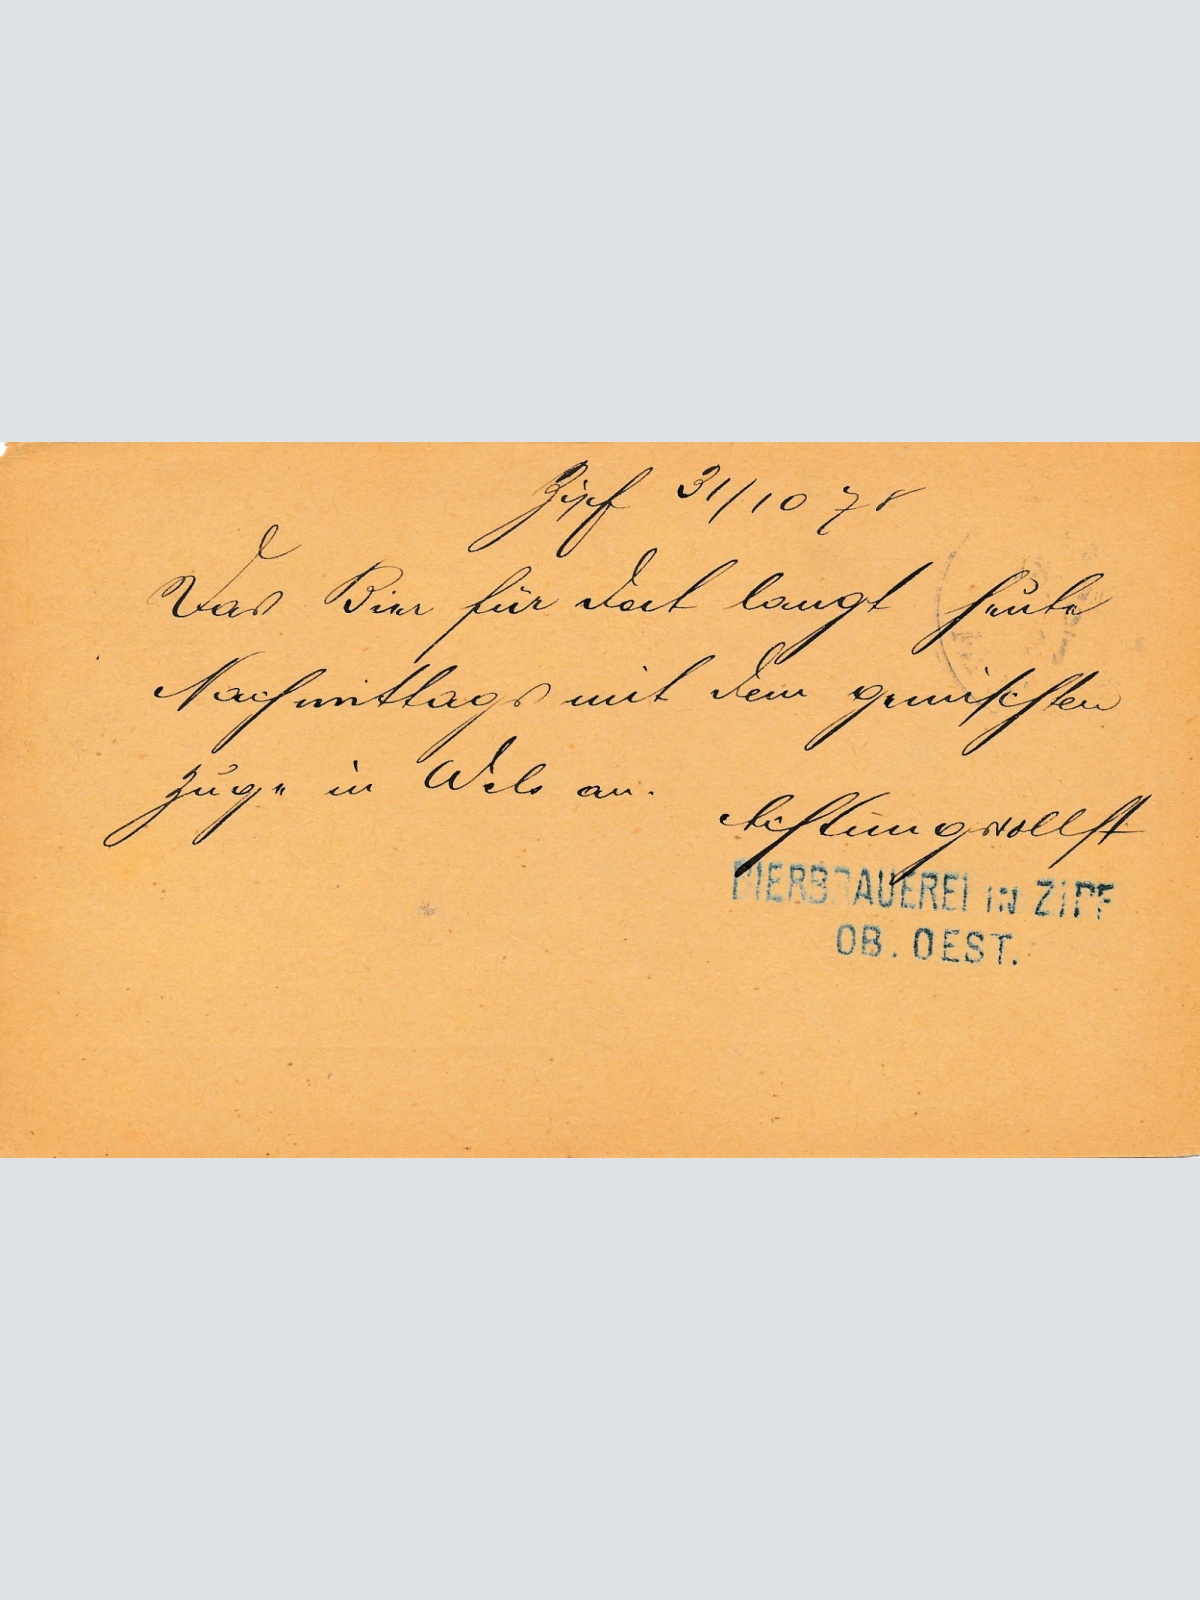 Zipf 31/10 78
Das Bier für dort langt heute
Nachmittags mit dem gemischten
Zuge in Wels an.
Achtungsvollst
BIERBRAUEREI IN ZIPF
OB. OEST.